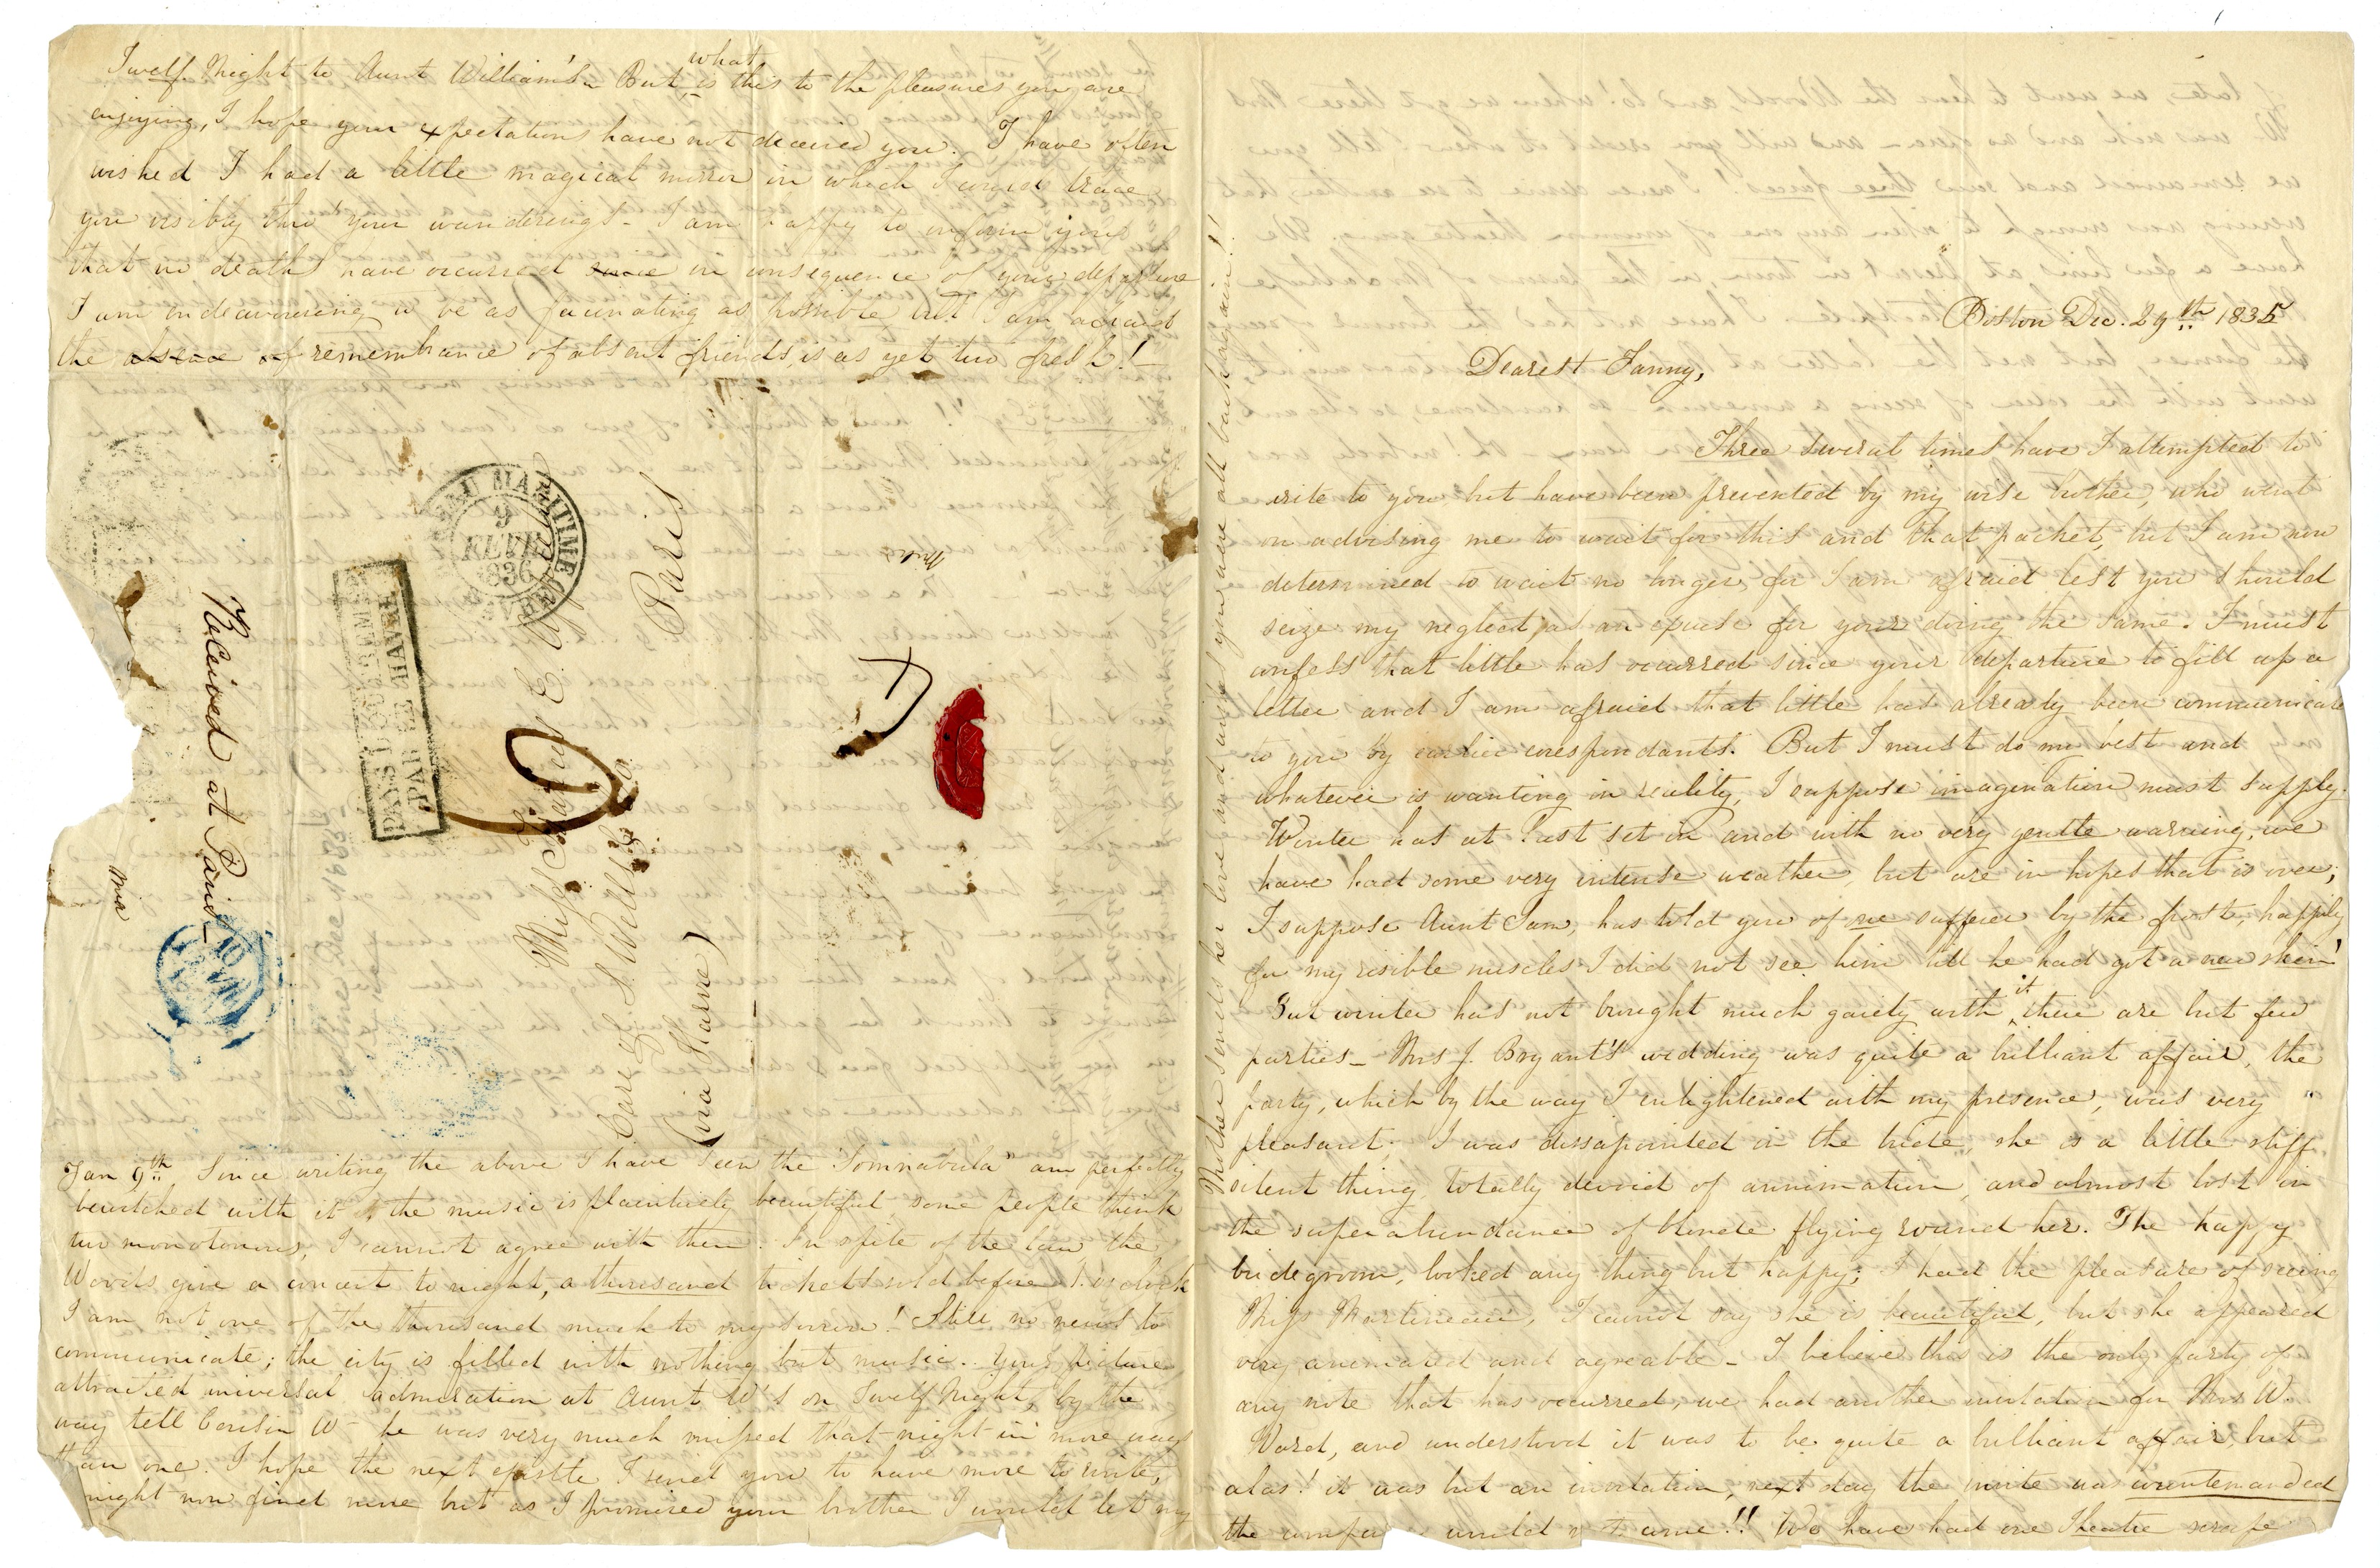 Boston Dec. 29th 1835
Dearest Fanny,
Three several times have I attempted to
write to you but have been prevented by my wise brother, who went
on advising me to wait for this and that packet, but I am now
determined to wait no longer, for I am afraid lest you should
seize my neglect as an excuse for your doing the same. I must
confess that little has occurred since your departure to fill up a
letter and I am afraid that little has already been communicated
to you by earlier correspondants. But I must do my best and
whatever is wanting in reality, I suppose imagination must supply.
Winter has at last set in and with no very gentle warning, we
have had some very intense weather, but are in hopes that is over;
I suppose Aunt Sam, has told you of one sufferer by the frost, happily
for my risible muscles I did not see him till he had got a new skin!
But winter has not brought much gaiety with it, there are but few
parties_ Mrs J. Bryant's wedding was quite a brilliant affair, the
party, which by the way I enlightened with my presence, was very
pleasant; I was dissapointed in the bride, she is a little stiff
silent thing, totally devoid of annimation, and almost lost in
the superabundance of blonde flying round her. The happy
bridegroom, looked any thing but happy; I had the pleasure of seeing
Miss Martineau, I cannot say she is beautiful, but she appeared
very animated and agreable_ I believe this is the only party of
any note that has occurred, we had another invitation for Mrs W.
Ward, and understood it was to be quite a brilliant affair, but
alas! it was but an invitation, next day the invite was countenanded
the would not come!! We have had one Theatre scrape
Mother sends her love and wishes you were all back again!!
Twelf Night to Aunt William's. But what is this to the pleasures you are
enjoying, I hope your expectations have not deceived you. I have often
wished I had a little magical mirror in which I might trace
you visibly thro' your wanderings_ I am happy to inform you
that no deaths have occurred since in consequence of your departure
I am endeavouring to be as facinating as possible but I am afraid
the absence of remembrance of absent friends, is as yet too fresh!_
Miss Fanny E. Appleton
Care of S. Welles
Paris
(via Havre)
BUREAU MARITIME HAVRE
9
FEVR
1836
PAYS D'OUTREMER
PAR LE HAVRE
Received at Paris_
Jan 9th Since writing the above I have seen the "Somnabula" am perfectly
bewitched with it, the music is plaintively beautiful, some people think
too monotonous, I cannot agree with them. In spite of the law the
Woods give a concert to night, a thousand tickets sold before 1. o'clock
I am not one of the thousand much to my sorrow! Still no news to
communicate; the city is filled with nothing but music. Your picture
attracted universal admiration at Aunt W's on Twelf Night, by the
way tell Cousin W_ he was very much missed that night in more ways
than one. I hope the next epistle I send you to have more to write,
might now find more but as I promised your brother I would let my